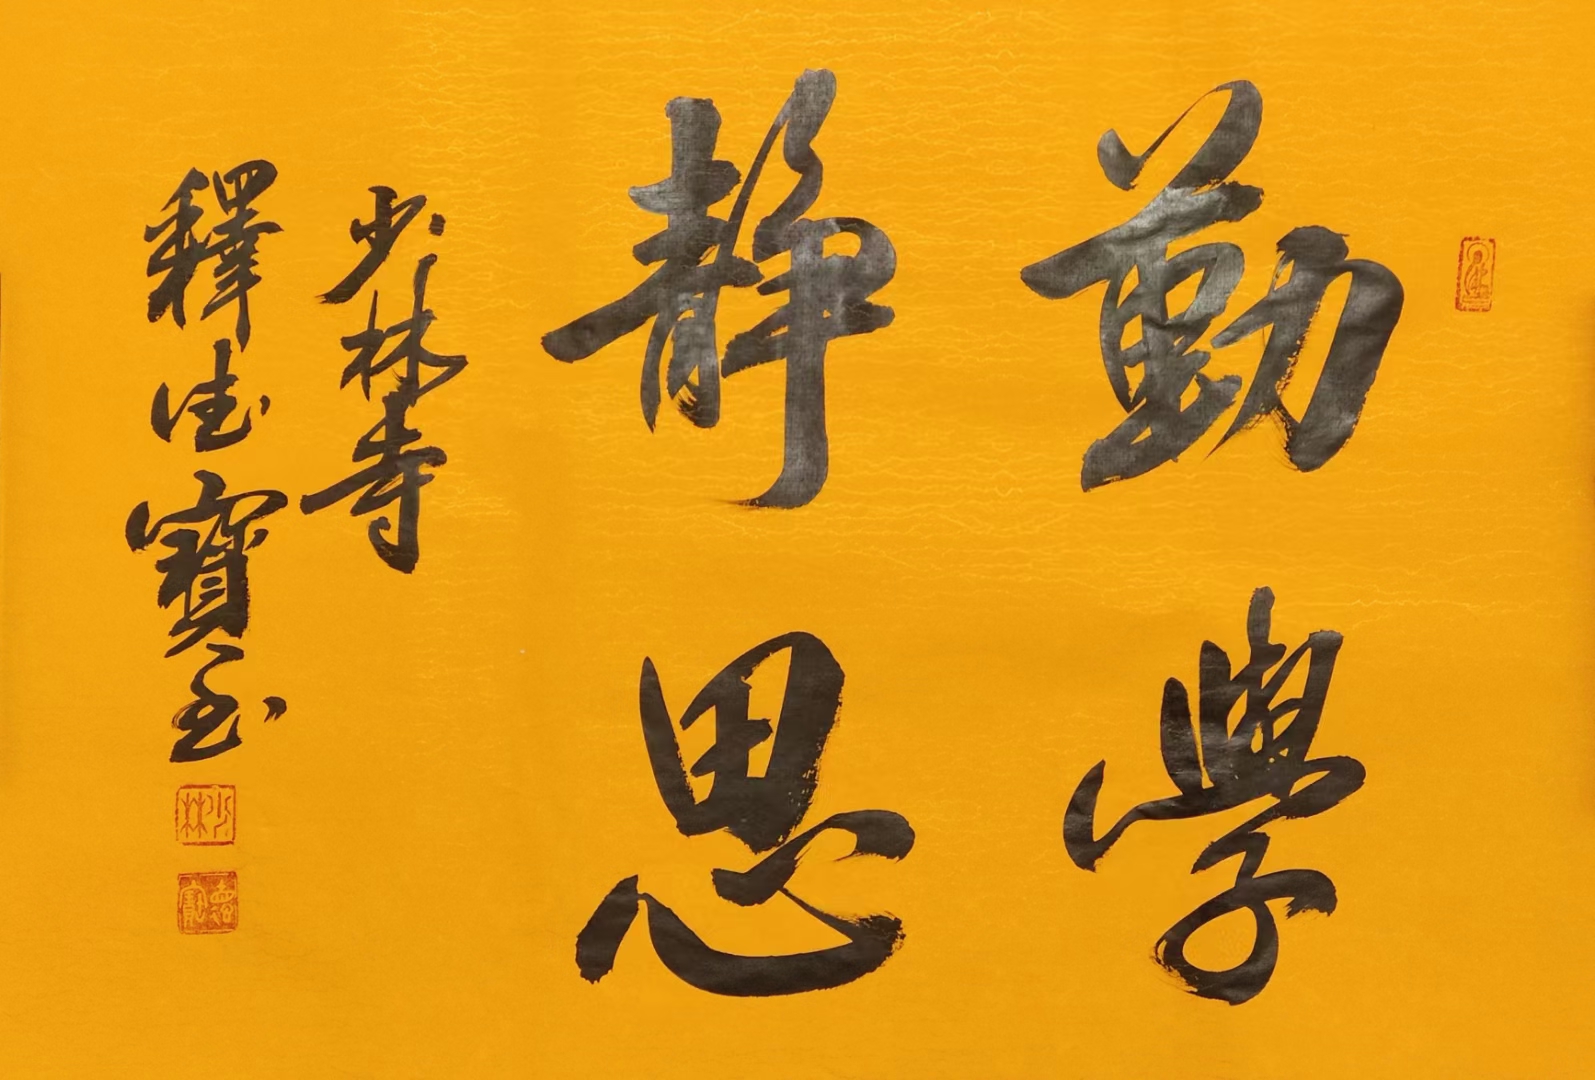 勤學
靜思
少林寺
釋德寶書
少林
德寶